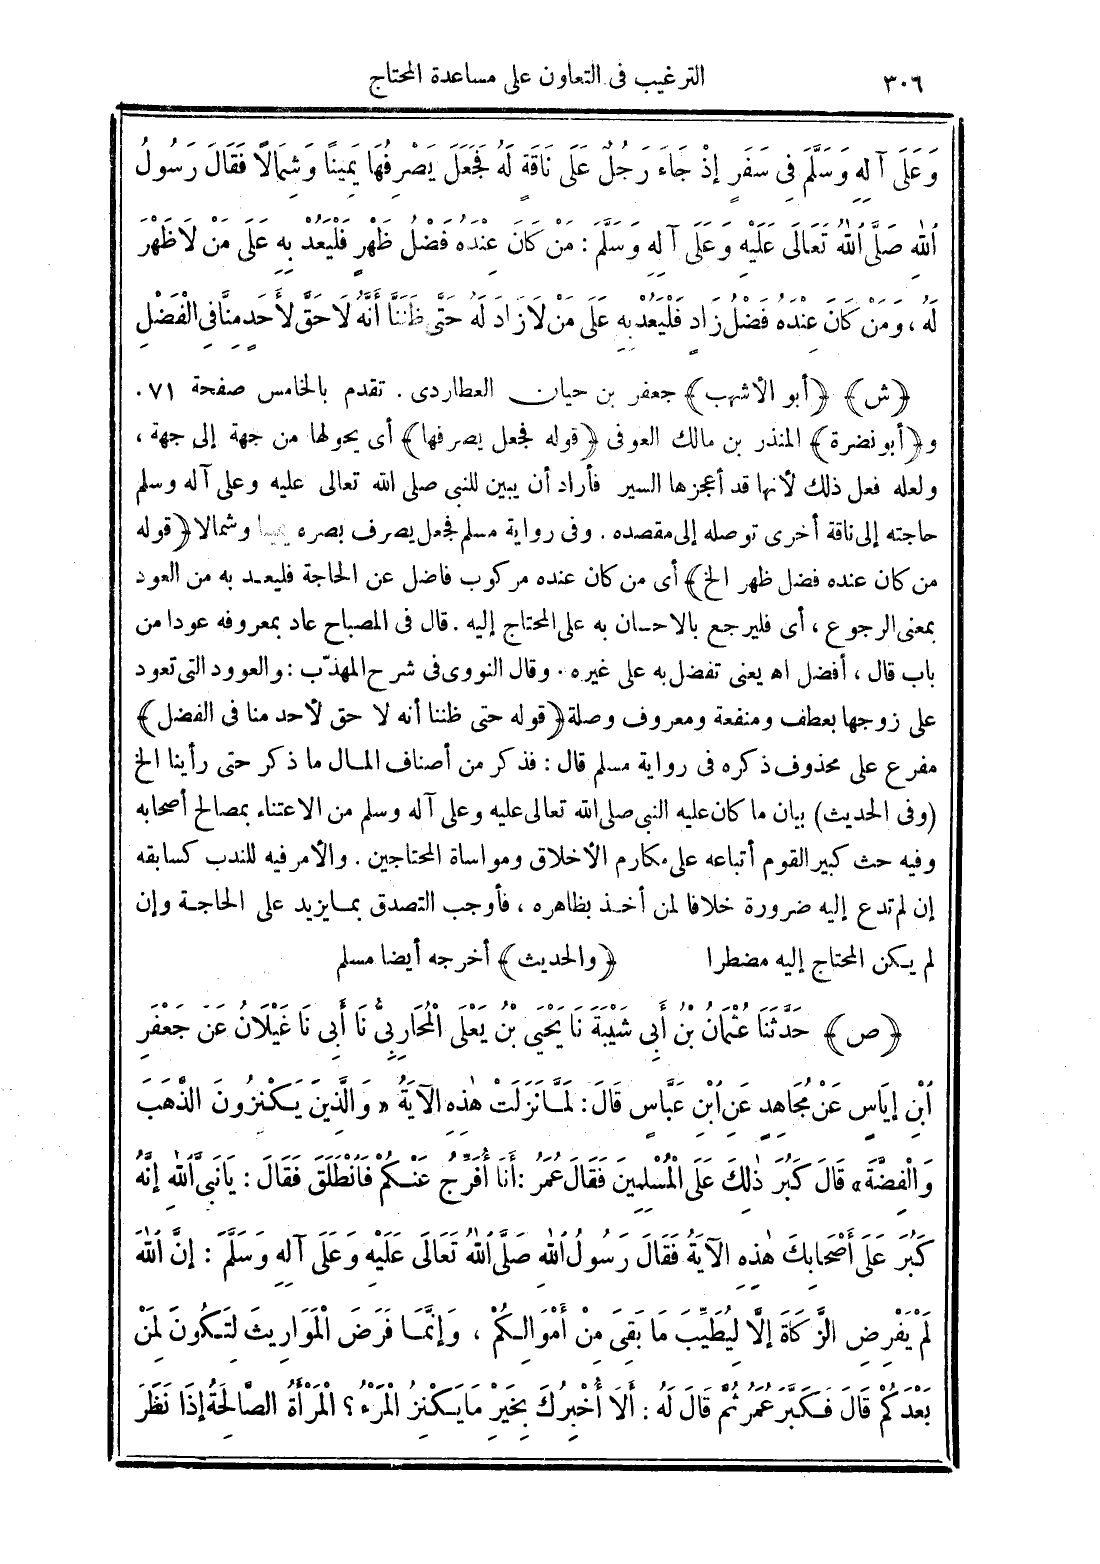 ٣٠٦ الترغيب فى التعاون على مساعدة المحتاج
وَعَلَى آلِهِ وَسَلَّمَ فِى سَفَرٍ إِذْ جَاءَ رَجُلٌ عَلَى نَاقَةٍ لَهُ فَجَعَلَ يَصْرِفُهَا يَمِينًا وَشِمَالًا فَقَالَ رَسُولُ
اللهِ صَلَّى اللهُ تَعَالَى عَلَيْهِ وَعَلَى آلِهِ وَسَلَّمَ : مَنْ كَانَ عِنْدَهُ فَضْلُ ظَهْرٍ فَلْيَعُدْ بِهِ عَلَى مَنْ لَا ظَهْرَ
لَهُ ، وَمَنْ كَانَ عِنْدَهُ فَضْلُ زَادٍ فَلْيَعُدْ بِهِ عَلَى مَنْ لَا زَادَ لَهُ حَتَّى ظَنَنَّا أَنَّهُ لَا حَقَّ لِأَحَدٍ مِنَّا فِى الْفَضْلِ
﴿ش﴾ ﴿أبو الأشهب﴾ جعفر بن حيان العطاردى . تقدم بالخامس صفحة ٧١ .
و﴿أبو نضرة﴾ المنذر بن مالك العوفى ﴿قوله فجعل يصرفها﴾ أى يحولها من جهة إلى جهة ،
ولعله فعل ذلك لأنها قد أعجزها السير فأراد أن يبين للنبي صلى الله تعالى عليه وعلى آله وسلم
حاجته إلى ناقة أخرى توصله إلى مقصده . وفى رواية مسلم فجعل يصرف بصره يمينا وشمالا ﴿قوله
من كان عنده فضل ظهر الخ﴾ أى من كان عنده مركوب فاضل عن الحاجة فليعد به من العود
بمعنى الرجوع ، أى فليرجع بالاحسان به على المحتاج إليه . قال فى المصباح عاد بمعروفه عودا من
باب قال ، أفضل اه يعنى تفضل به على غيره . وقال النووى فى شرح المهذّب : والعوود التى تعود
على زوجها بعطف ومنفعة ومعروف وصلة ﴿قوله حتى ظننا أنه لا حق لأحد منا فى الفضل﴾
مفرع على محذوف ذكره فى رواية مسلم قال : فذكر من أصناف المال ما ذكر حتى رأينا الخ
(وفى الحديث) بيان ما كان عليه النبي صلى الله تعالى عليه وعلى آله وسلم من الاعتناء بمصالح أصحابه
وفيه حث كبير القوم أتباعه على مكارم الأخلاق ومواساة المحتاجين . والأمر فيه للندب كسابقه
إن لم تدع إليه ضرورة خلافا لمن أخذ بظاهره ، فأوجب التصدق بما يزيد على الحاجة وإن
لم يكن المحتاج إليه مضطرا ﴿والحديث﴾ أخرجه أيضا مسلم
﴿ص﴾ حَدَّثَنَا عُثْمَانُ بْنُ أَبِى شَيْبَةَ نَا يَحْيَى بْنُ يَعْلَى الْمُحَارِبِىُّ نَا أَبِى نَا غَيْلَانُ عَنْ جَعْفَرِ
ابْنِ إِيَاسٍ عَنْ مُجَاهِدٍ عَنِ ابْنِ عَبَّاسٍ قَالَ : لَمَّا نَزَلَتْ هٰذِهِ الآيَةُ « وَالَّذِينَ يَكْنِزُونَ الذَّهَبَ
وَالْفِضَّةَ» قَالَ كَبُرَ ذٰلِكَ عَلَى الْمُسْلِمِينَ فَقَالَ عُمَرُ : أَنَا أُفَرِّجُ عَنْكُمْ فَانْطَلَقَ فَقَالَ : يَا نَبِىَّ اللهِ إِنَّهُ
كَبُرَ عَلَى أَصْحَابِكَ هٰذِهِ الآيَةُ فَقَالَ رَسُولُ اللهِ صَلَّى اللهُ تَعَالَى عَلَيْهِ وَعَلَى آلِهِ وَسَلَّمَ : إِنَّ اللهَ
لَمْ يَفْرِضِ الزَّكَاةَ إِلَّا لِيُطَيِّبَ مَا بَقِىَ مِنْ أَمْوَالِكُمْ ، وَإِنَّمَا فَرَضَ الْمَوَارِيثَ لِتَكُونَ لِمَنْ
بَعْدَكُمْ قَالَ فَكَبَّرَ عُمَرُ ثُمَّ قَالَ لَهُ : أَلَا أُخْبِرُكَ بِخَيْرِ مَا يَكْنِزُ الْمَرْءُ ؟ الْمَرْأَةُ الصَّالِحَةُ إِذَا نَظَرَ